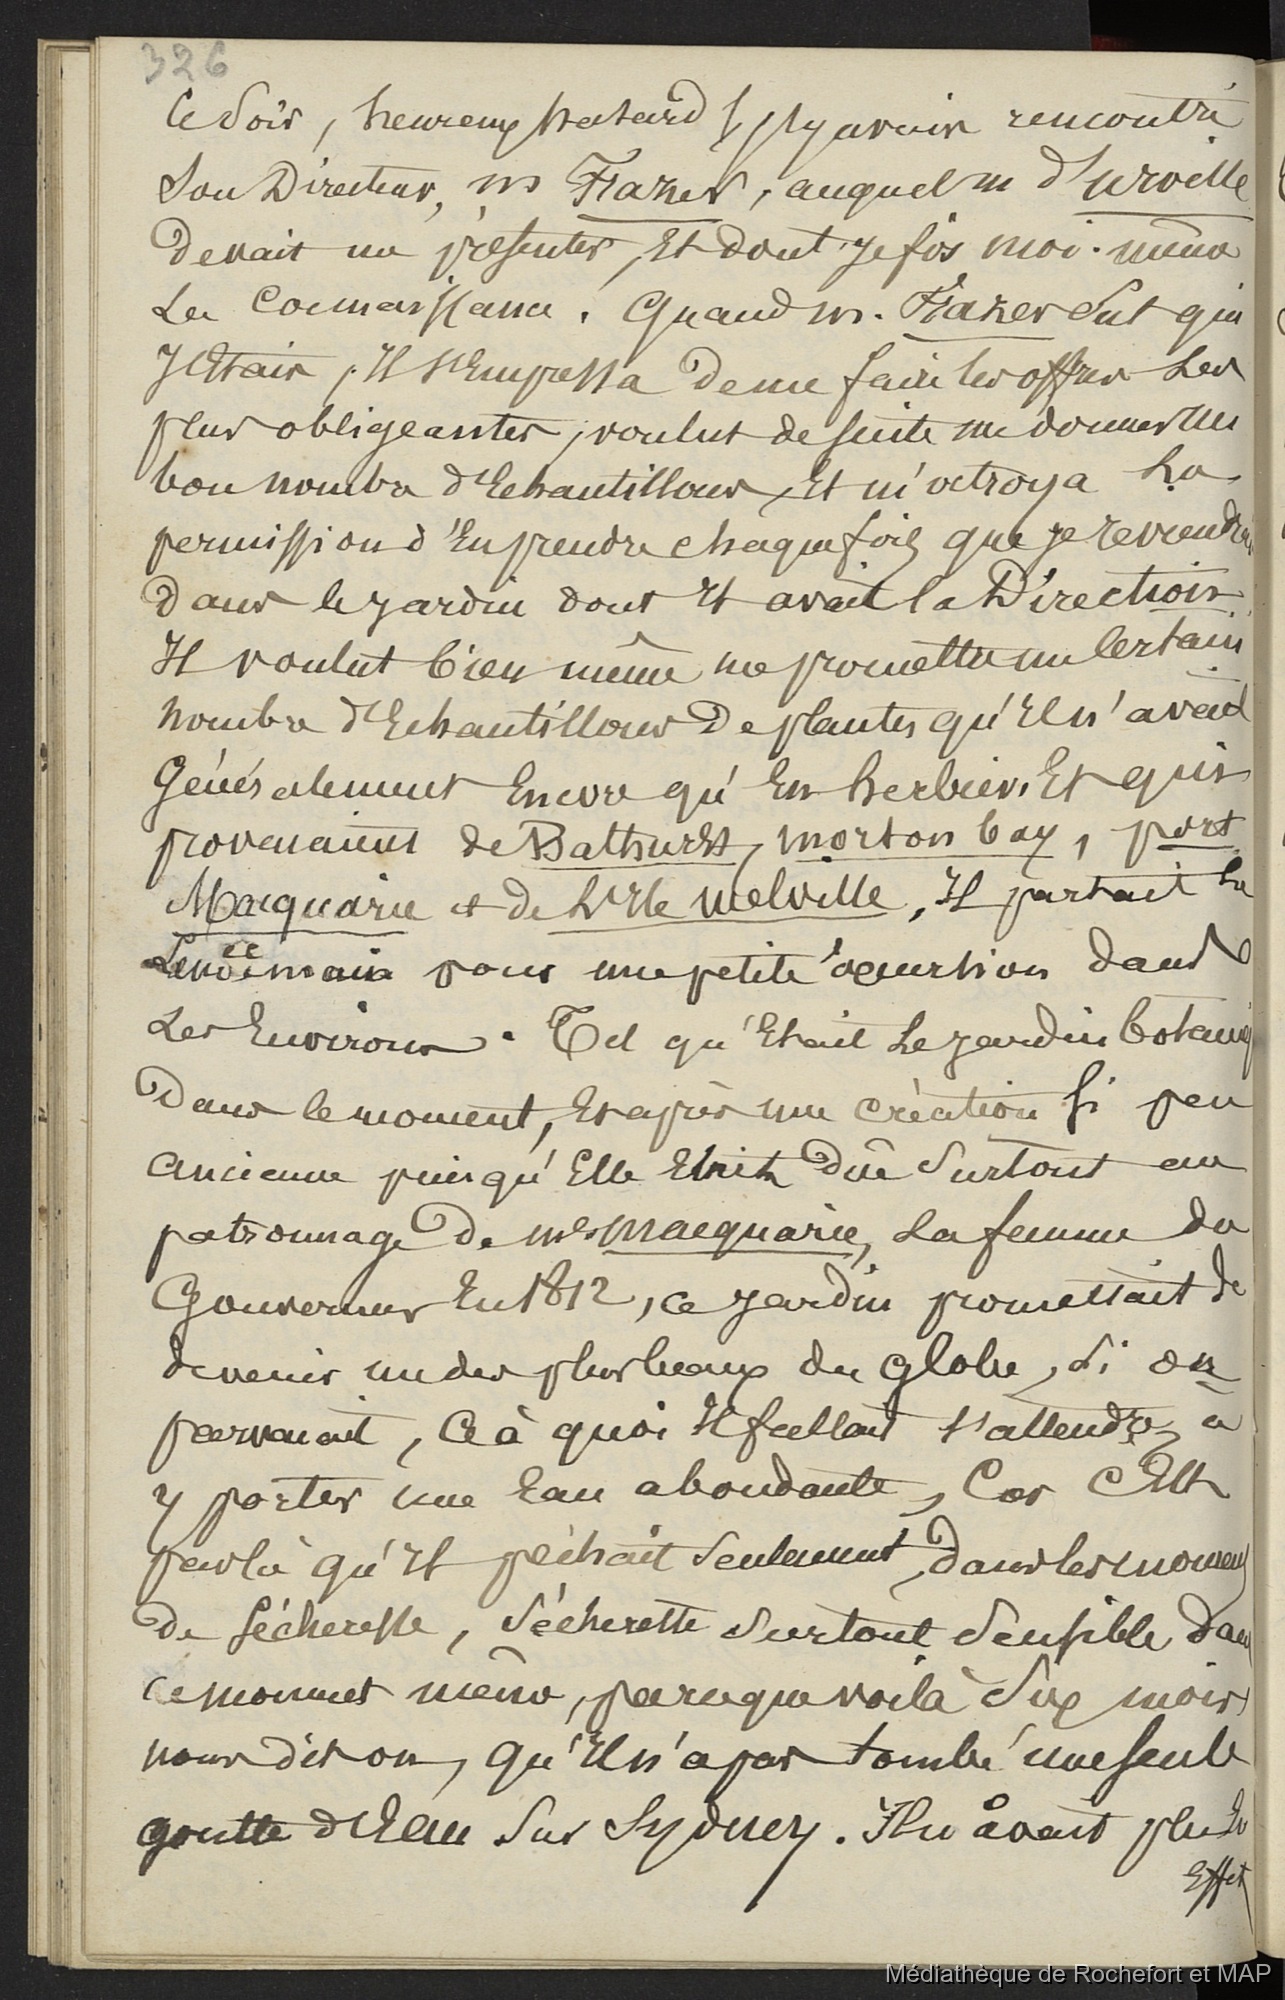 326
Ce soir, heureux hasard ! j'y avais rencontré
Son Directeur, m Frazer, auquel m d'urville
Devait me présenter, Et dont je fis moi-même
La Connaissance. Quand m. Frazer sut qui
J'Etais, Il s'Empressa de me faire les offres Les
plus obligeantes, voulut de suite me donner un
bon nombre d'Echantillons, Et m'octroya La
permission d'En prendre chaque fois que je reviendrais
Dans le jardin dont Il avait la Direction.
Il voulut bien même me promettre un Certain
nombre d'Echantillons De plantes qu'Il n'avait
Généralement Encore qu'En herbier, Et qui
provenaient de Bathurst, morton bay, port
Macquarie et de L'Ile melville, Il partait Le
Lendemain pour une petite Excursion dans
Les Environs. Tel qu'Etait Le jardin botaniq
Dans le moment, Et après une création si peu
ancienne puisqu'Elle Etait Dûe Surtout au
patronnage De me macquarie, La femme du
Gouverneur En 1812, ce jardin promettait de
devenir un des plus beaux du globe, si on
parvenait, Ce à quoi Il fallait s'attendre, a
y porter une Eau abondante, Car C'Est
par là qu'Il péchait Seulement, Dans les momens
De sécheresse, Sécheresse Surtout Sensible dans
ce moment même, parceque voilà Six mois,
nous dit on, qu'Il n'a pas tombé une seule
goutte d'Eau Sur Sydney. Il n'avait plu En
Effet
Médiathèque de Rochefort et MAP